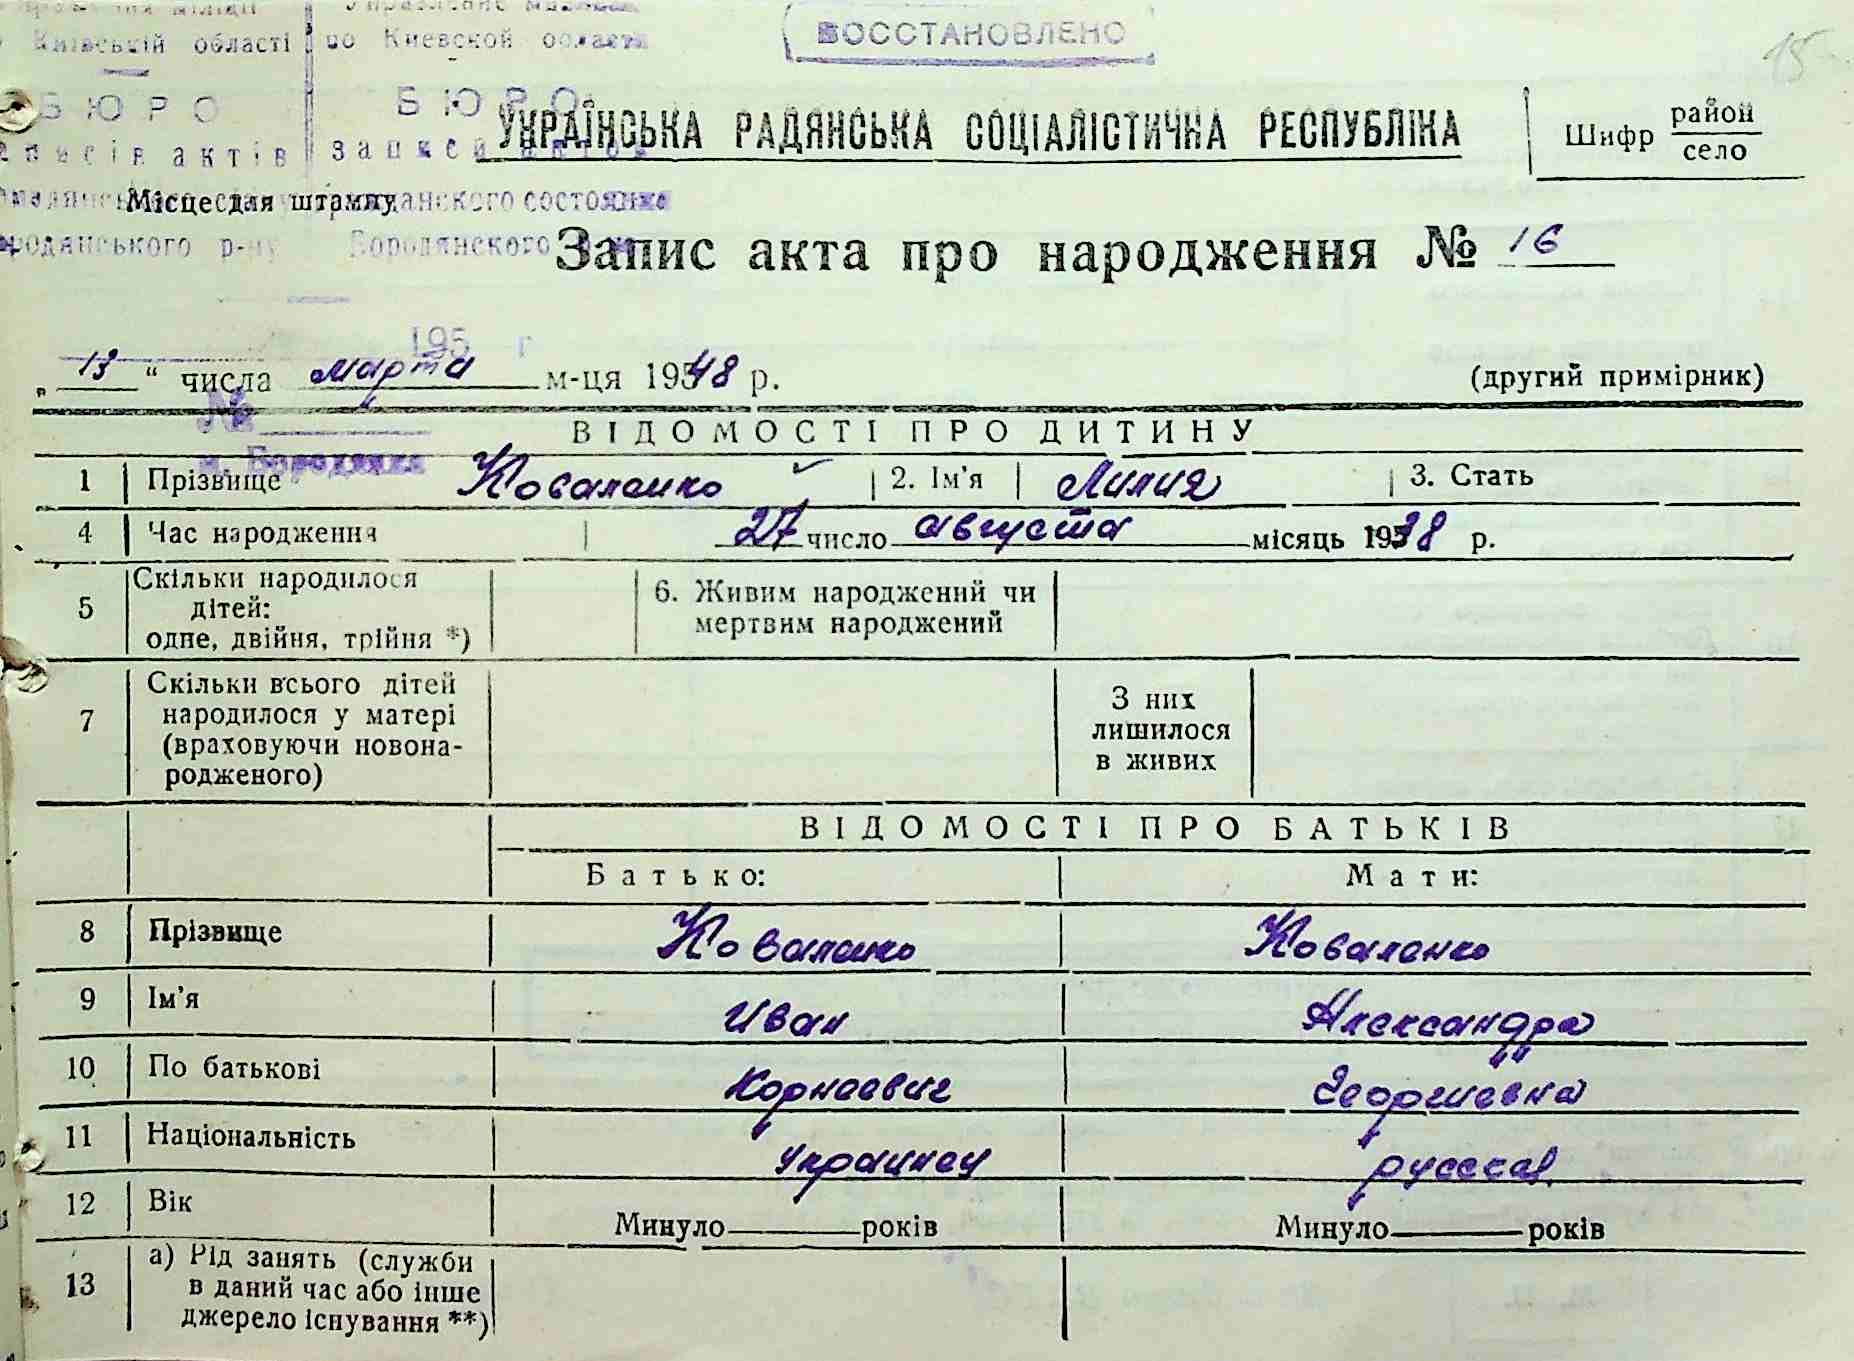 Київській області по Киевской области
ВОССТАНОВЛЕНО
15
БЮРО БЮРО
УКРАЇНСЬКА РАДЯНСЬКА СОЦІАЛІСТИЧНА РЕСПУБЛІКА
Шифр район
село
актів
Місце для штампу
гражданского состояния
Бородянського р-ну Бородянского
Запис акта про народження № 16
195 г
„ 13 “ числа марта м-ця 1948 р.
(другий примірник)
№
м. Бородянка
ВІДОМОСТІ ПРО ДИТИНУ
1 Прізвище Коваленко 2. Ім’я Лилия 3. Стать
4 Час народження 27 число августа місяць 1938 р.
5 Скільки народилося
дітей:
одне, двійня, трійня *)
6. Живим народжений чи
мертвим народжений
7 Скільки всього дітей
народилося у матері
(враховуючи новона-
родженого)
З них
лишилося
в живих
ВІДОМОСТІ ПРО БАТЬКІВ
Батько: Мати:
8 Прізвище Коваленко Коваленко
9 Ім’я Иван Александра
10 По батькові Корнеевич Георгиевна
11 Національність Украинец русская
12 Вік Минуло років Минуло років
13 а) Рід занять (служби
в даний час або інше
джерело існування **)